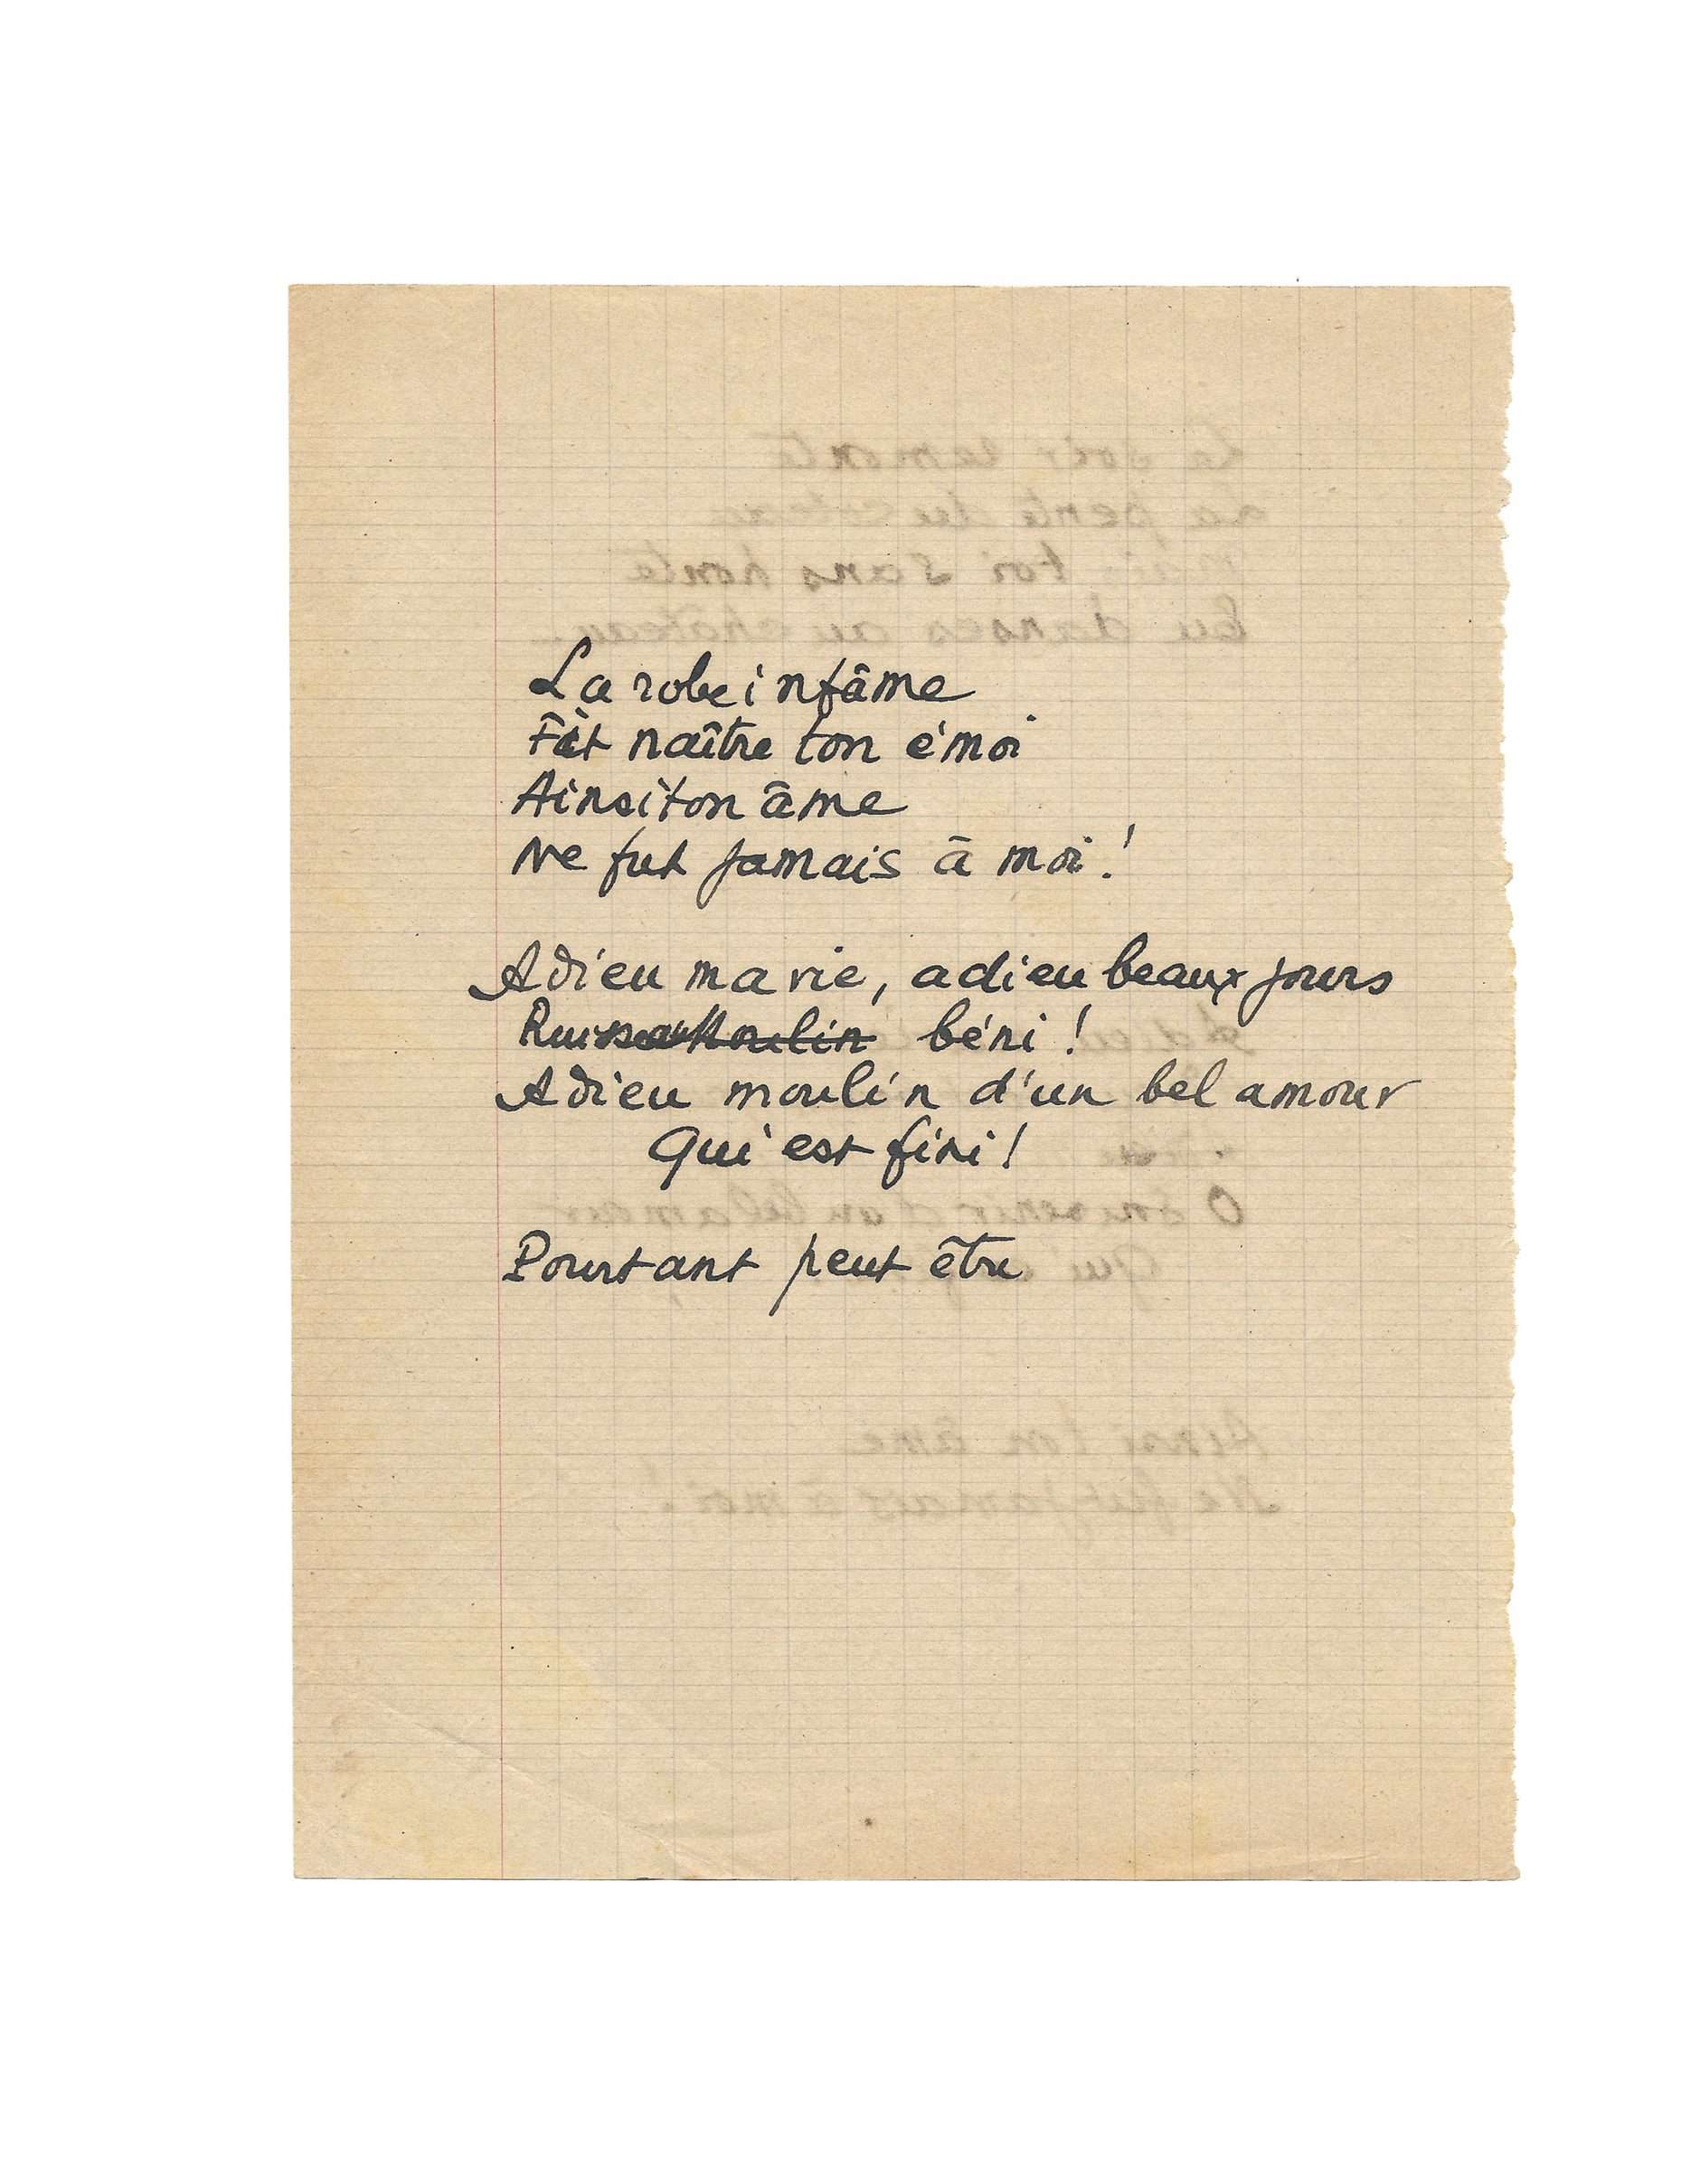 La robe infâme
Fit naître ton émoi
Ainsi ton âme
Ne fut jamais à moi !
Adieu ma vie, adieu beaux jours
béni !
Adieu moulin d'un bel amour
Qui est fini !
Pourtant peut être